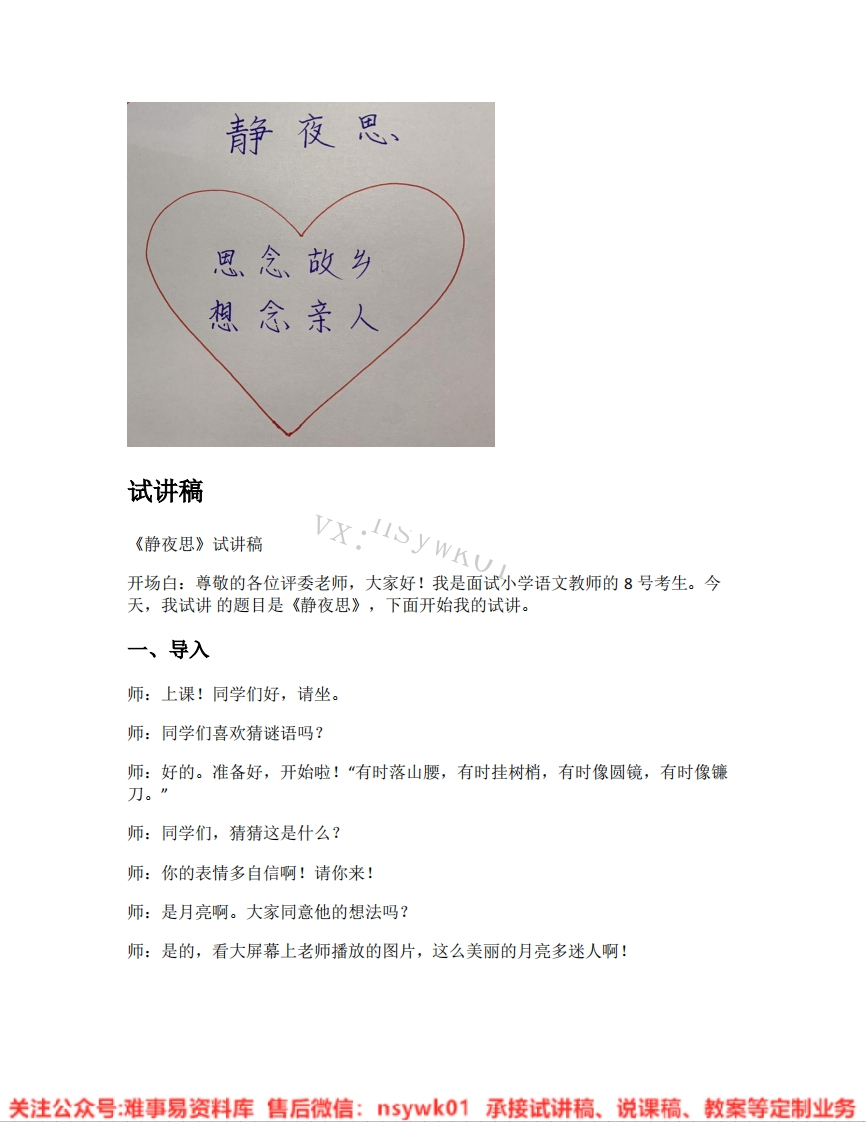 静夜思
思念故乡
想念亲人
试讲稿
VX:nsywk01
《静夜思》试讲稿
开场白：尊敬的各位评委老师，大家好！我是面试小学语文教师的 8 号考生。今
天，我试讲 的题目是《静夜思》，下面开始我的试讲。
一、导入
师：上课！同学们好，请坐。
师：同学们喜欢猜谜语吗？
师：好的。准备好，开始啦！“有时落山腰，有时挂树梢，有时像圆镜，有时像镰
刀。”
师：同学们，猜猜这是什么？
师：你的表情多自信啊！请你来！
师：是月亮啊。大家同意他的想法吗？
师：是的，看大屏幕上老师播放的图片，这么美丽的月亮多迷人啊！
关注公众号:难事易资料库 售后微信：nsywk01 承接试讲稿、说课稿、教案等定制业务